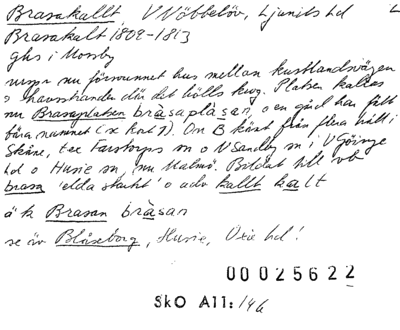 Brasakallt, V Nöbbelöv, Ljunits hd L
Brasakalt 1802-1813
ghs i Mossby
urspr nu försvunnet hus mellan kustlandsvägen
o havsstranden där det hölls krog. Platsen kallas
nu Brasaplatsen bràsaplàsan, o en gård har fått
bära namnet (x krt 7). On B känt från flera håll i
Skåne, t ex Farstorps sn o N Sandby sn i V Göinge
hd o Husie sn, nu Malmö. Bildat till vb
brasa 'elda starkt' o adv kallt kalt
ä k Brasan bràsan
se äv Blåseborg, Husie, Oxie hd!
00025622
SkO A11: 146